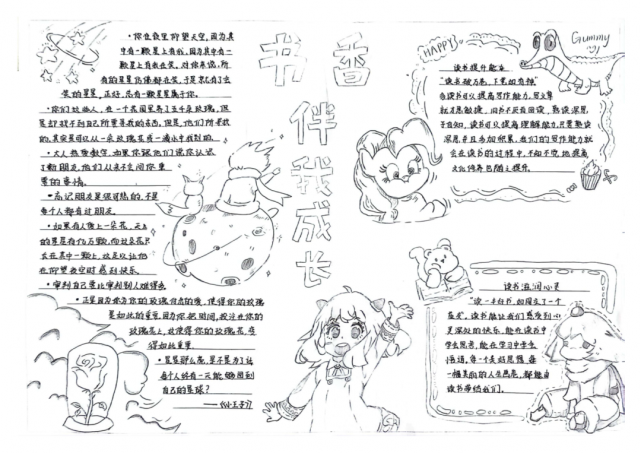 书香
伴我成长
·你在夜里仰望天空,因为其
中有一颗星上有我,因为其中有一
颗星上有我在笑,对你来说,所
有的星星仿佛都在笑,于是你就有了会
笑的星星,正好,总有一颗星星属于你。
·你们这些人,在一个花园里养了五千朵玫瑰,但
是却找不到自己所要寻找的东西,但是,他们所寻找
的,其实是可以从一朵玫瑰花或一滴水中找到的。
·大人热爱数字,如果你跟他们说你认识
了新朋友,他们从来不会问你重
要的事情。
·忘记朋友是很可悲的,不是
每个人都有过朋友。
·如果有人爱上一朵花,天上
的星星有几百万颗,而这朵花只
长在其中一颗上,这足以让他
在仰望夜空时感到快乐。
·审判自己要比审判别人难得多
·正是因为你为你的玫瑰付出的爱,使得你的玫瑰
是如此的重要,因为你把时间投注在你的
玫瑰花上,就使得你的玫瑰花变
得如此重要。
·星星那么亮,是不是为了让
每个人终有一天能够回到
自己的星球?
——《小王子》
HAPPY
Gummy
读书提升能力
"读书破万卷,下笔如有神"
书可以提高写作能力,写文章
就才思敏捷,旧书不厌百回读,熟读深思
子自知,读书可以提高理解能力,只要熟读
深思并且多加积累,我们的写作能力就
会在读书的过程中,不知不觉地提高
文化修养也随之提升。
读书滋润心灵
"读一本好书,如同交了一个
益友",读书能让我们感受到心
灵深处的快乐,能在读书中
学会思考,能在学习中学会
悟道,每一个美好思想,每
一幅美丽的人生画卷,都能由
读书带给我们。